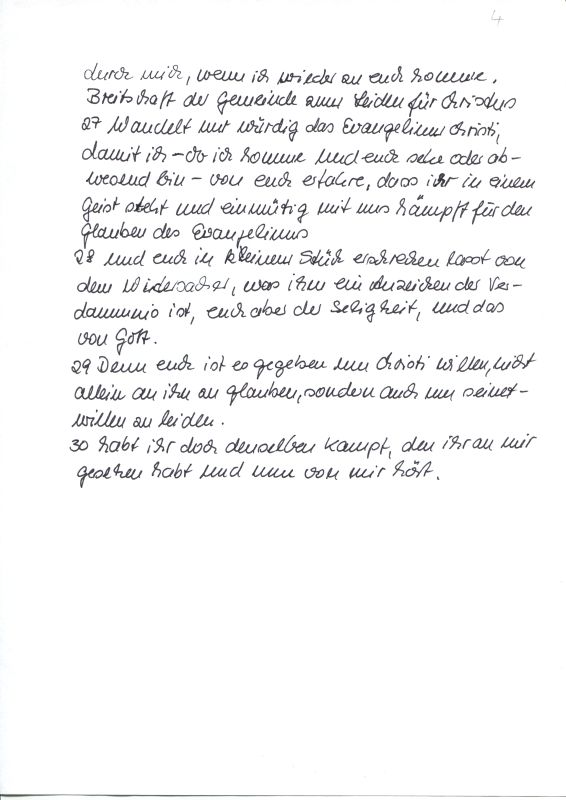 4
durch mich, wenn ich wieder an euch komme.
Breitschaft der Gemeinde zum Leiden für Christus
27 Wandelt nur würdig das Evangelium Christi,
damit ich – ob ich komme und euch sehe oder ab-
wesend bin – von euch erfahre, dass ihr in einem
Geist steht und einmütig mit uns kämpft für den
Glauben des Evangeliums
28 und euch in keinem Stück erschrecken lasst von
dem Widersacher, was ihm ein Anzeichen der Ver-
dammnis ist, euch aber der Seligkeit, und das
von Gott.
29 Denn euch ist es gegeben um Christi willen, nicht
allein an ihn zu glauben, sondern auch um seinet-
willen zu leiden.
30 habt ihr doch denselben Kampf, den ihr an mir
gesehen habt und nun von mir hört.